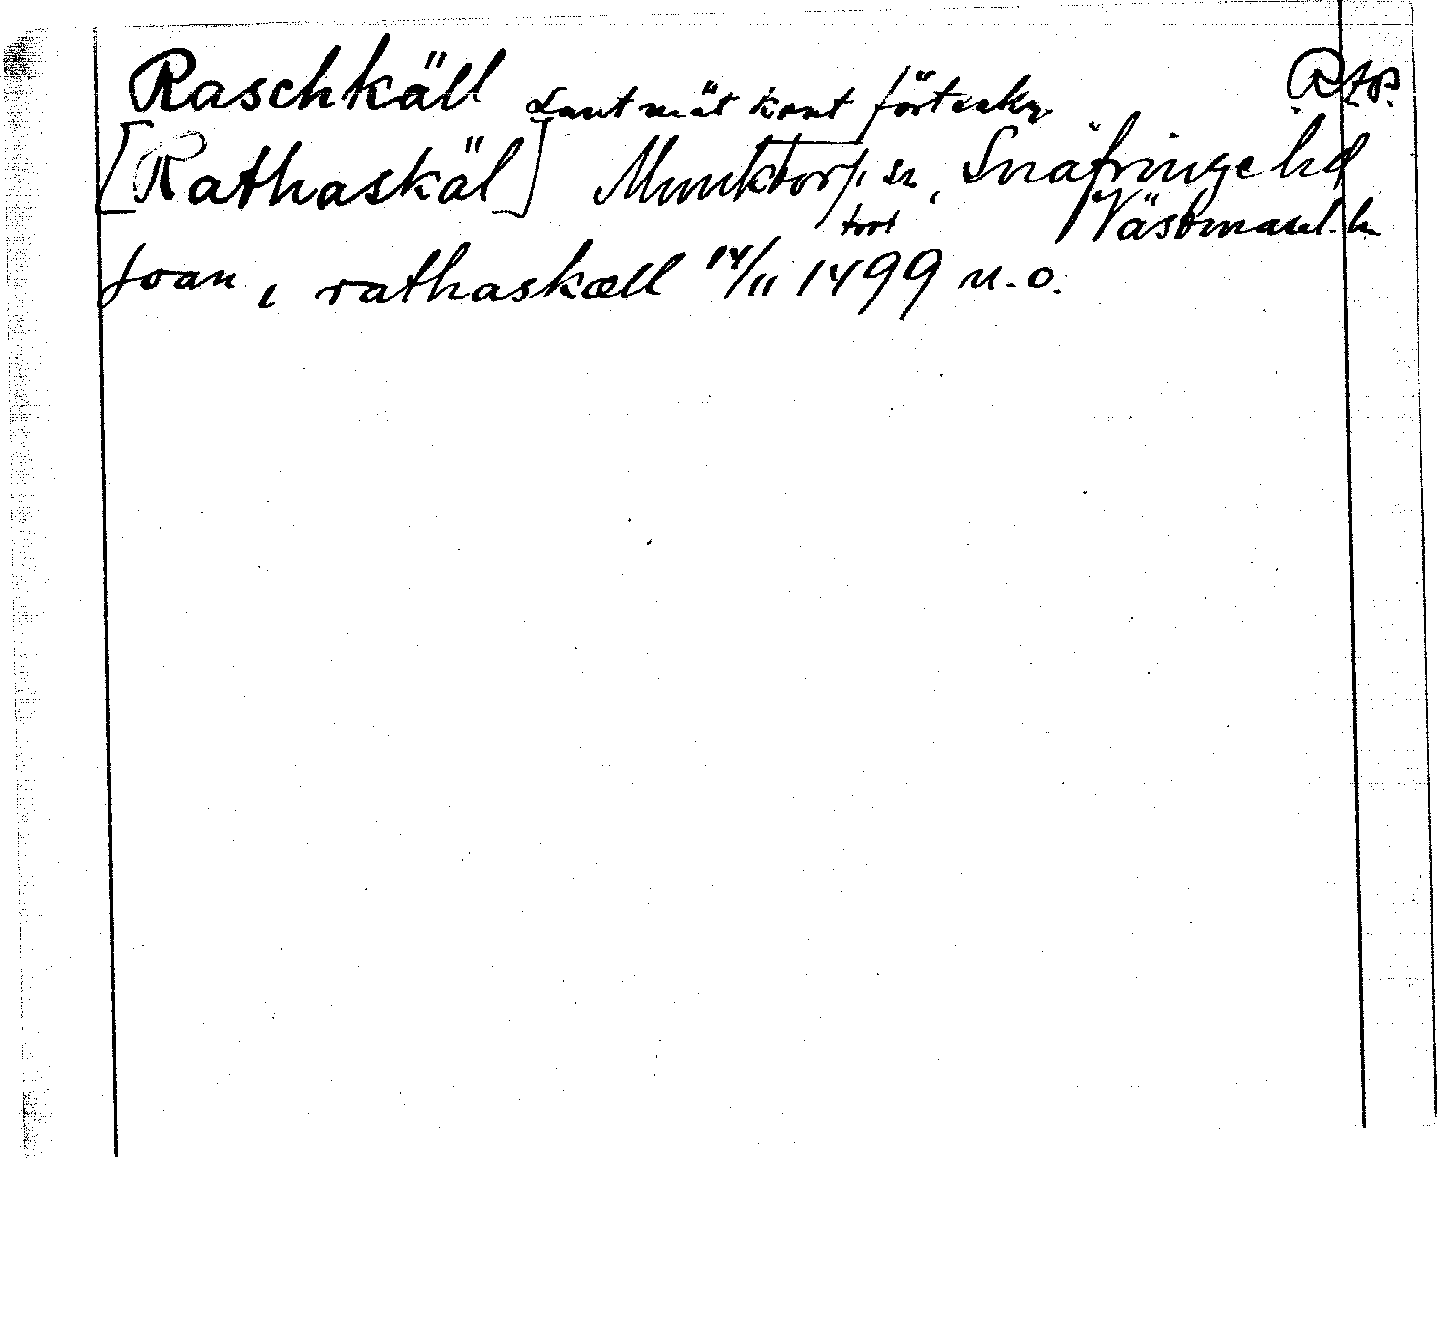 Raschkäll Lantmät kont förteckn. R to.
[Rathaskäl] Munktorp sn, Snäfringe hd
tort Västmanl. ln
joan i rathaskæll 14/11 1499 u.o.